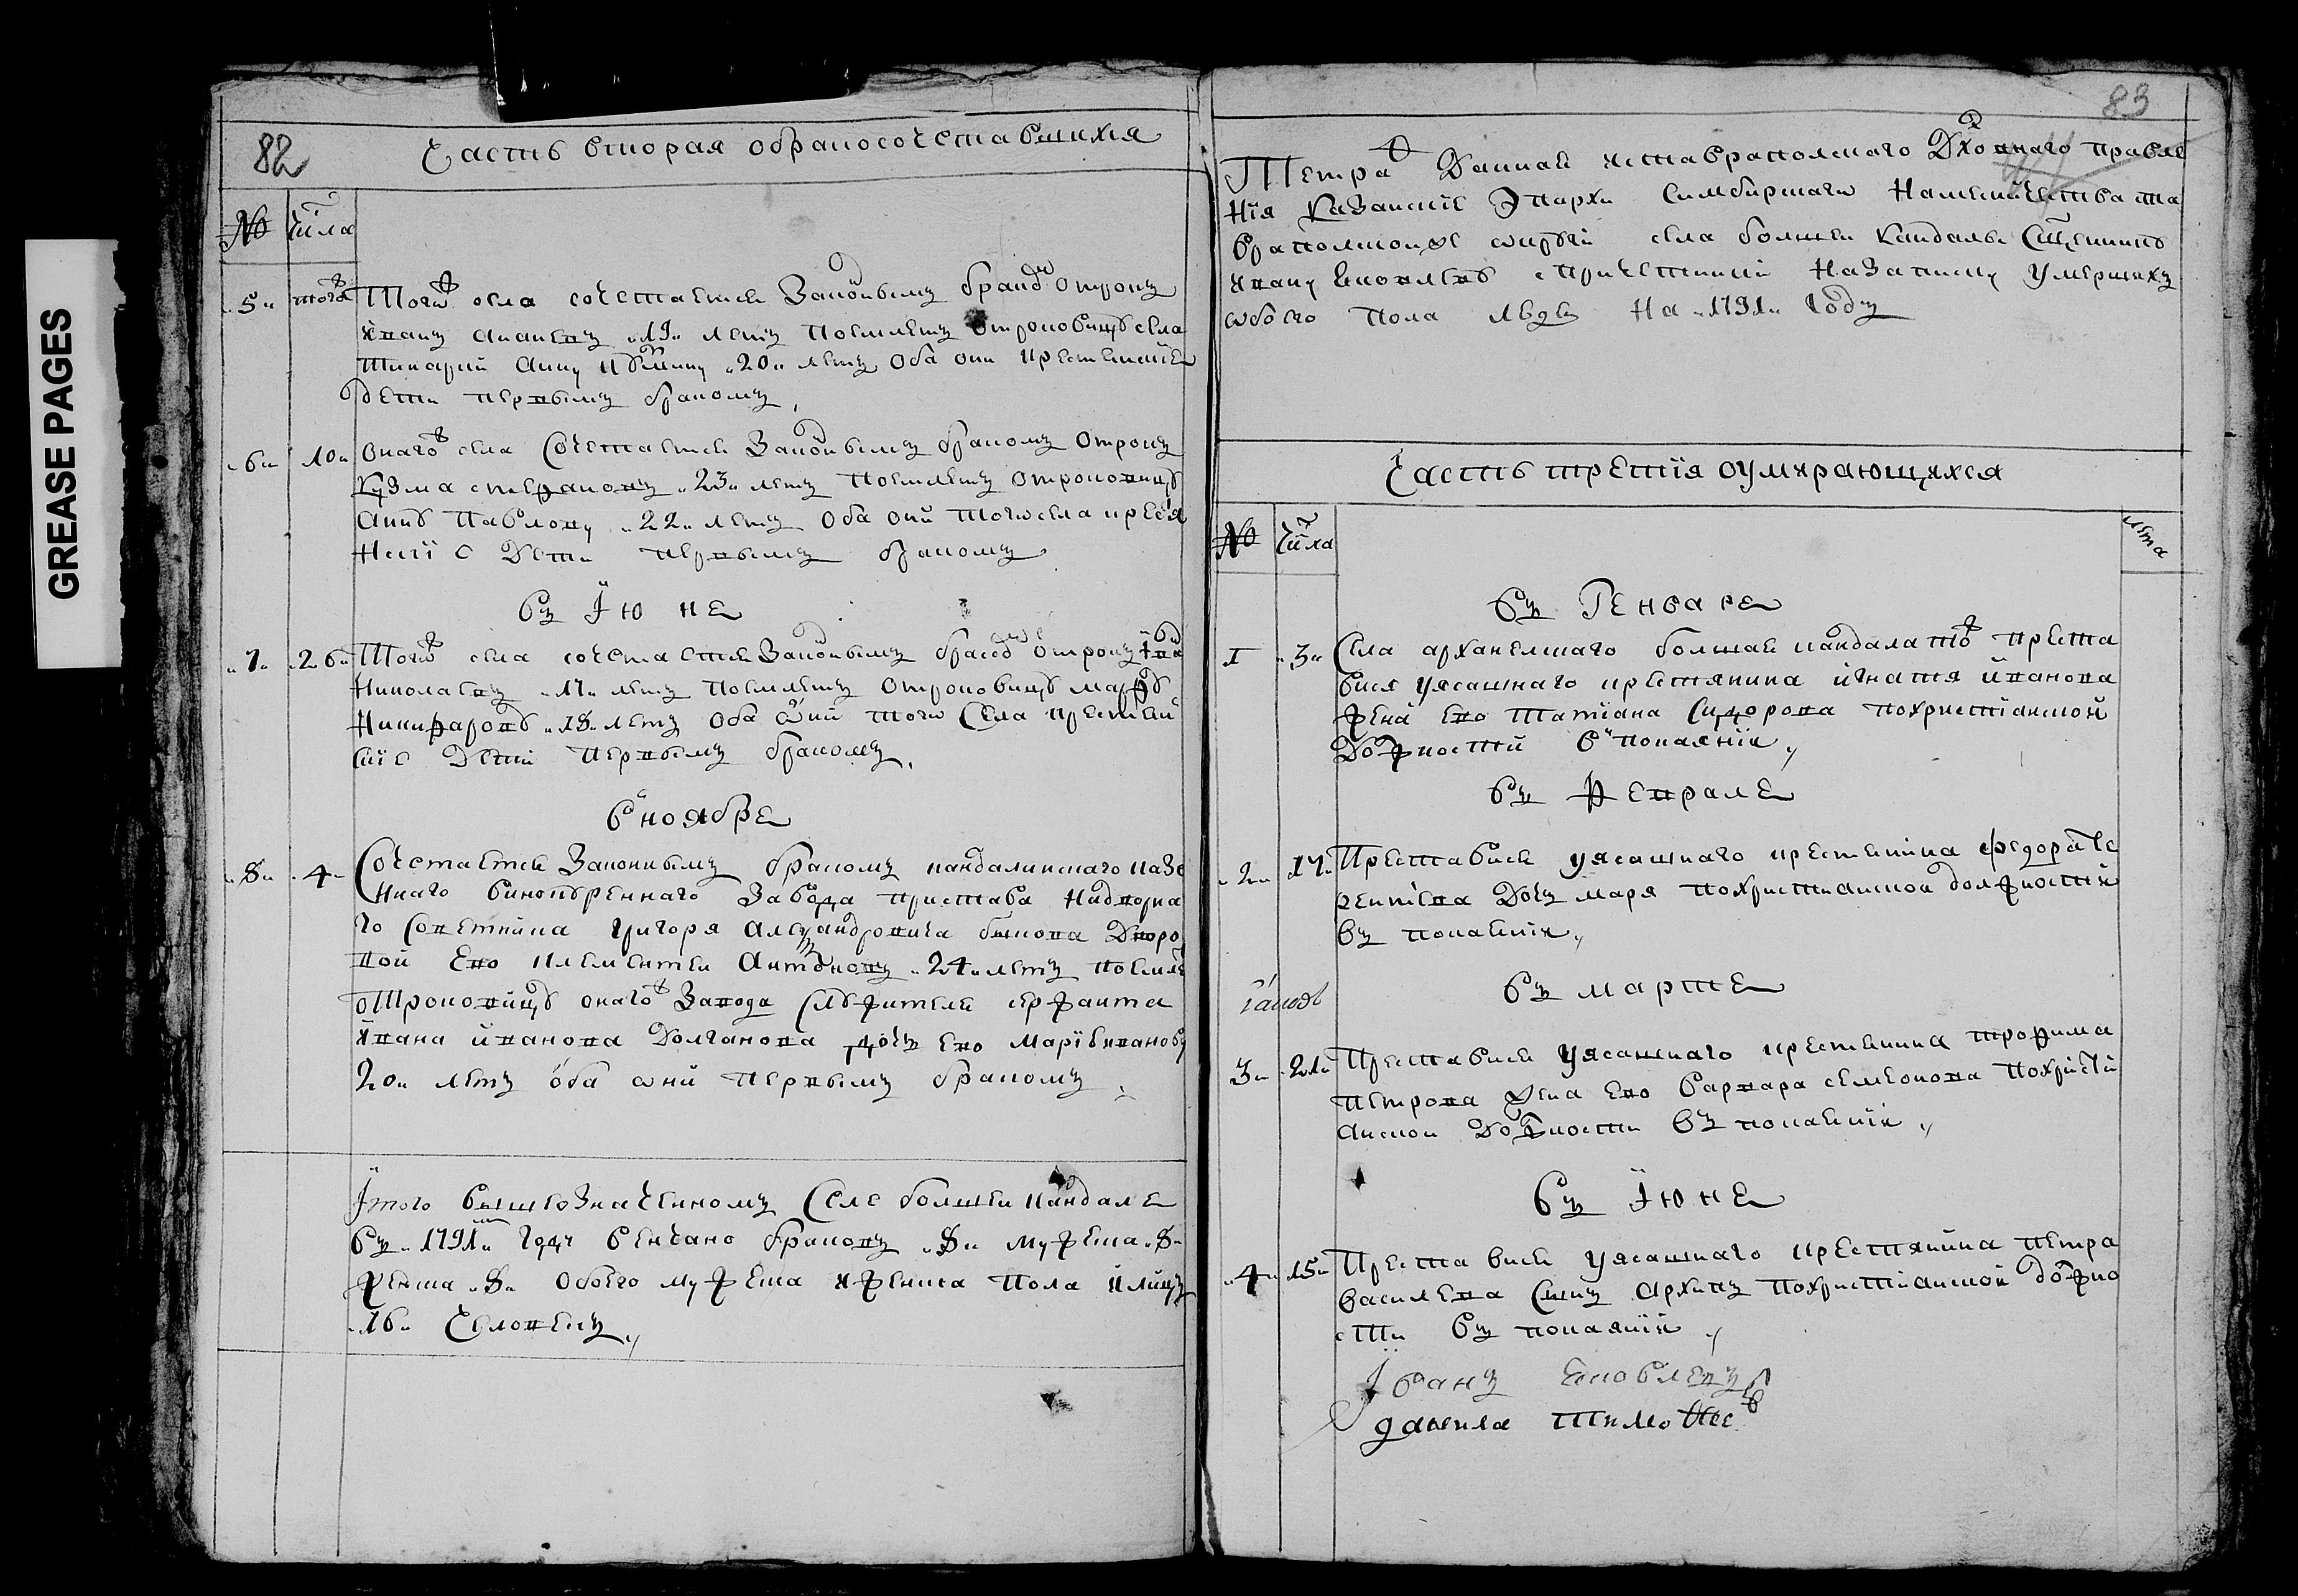 GREASE PAGES
82
Часть вторая о бракосочетавшихся
№ числа
5 тогож Тогож села сочетался законнымъ бракомъ отрокъ
Иванъ Ананевъ 19 летъ поемлетъ отроковицу села
Анну 20 летъ оба они крестьянские
дети первымъ бракомъ
6 10 Онагож села сочетается законнымъ бракомъ отрокъ
Кузма 23 летъ поемлетъ отроковицу
Анну Павлову 22 летъ оба они того села крестья
нские дети первымъ бракомъ
Въ Июне
7 26 Тогож села сочетается законнымъ бракомъ отрокъ Иванъ
Николаевъ 17 летъ поемлетъ отроковицу Марфу
Никифарову 18 летъ оба они того села крестьян
ские дети первымъ бракомъ
В ноябре
8 4 Сочетается законнымъ бракомъ кандалинскаго казе
ннаго винокуреннаго завода пристава надворна
го советника Григоря Александровича Быкова дворо
вой ево Климентей Антоновъ 24 летъ поемле
отроковицу онагож завода служителя сержанта
Ивана Иванова Долганова дочь ево Марию Иванову
20 летъ оба они первымъ бракомъ
Итого вышеозначенномъ селе болшей Кандале
въ 1791 году венчано браковъ 8 мужеска 8
женска 8 обоего мужеска и женска пола и лицъ
16 человекъ
83
Тетрадь данная из Ставраполскаго Духовнаго правле
ния Казанские Епархи Симбирскаго Наместничества Ста
враполской округи села болшей Кандалы Священнику
Ивану Яковлеву с причетники На записку умершихъ
обоего пола людей На 1791 годъ
Часть третия о умирающихся
№ числа лета
Въ Генваре
1 3 Села Архангелскаго болшая Кандала тож преста
вися уясашнаго крестянина Игнатя Иванова
жена ево Татиана Сидорова по христианской
должности в покаянии
Въ Феврале
2 17 Преставися уясашнаго крестьянина Федора Те
рентиева дочь Маря по христианской должности
въ покаянии
Въ Марте
3 21 Преставися уясашнаго крестьянина Трофима
Петрова жена ево Варвара Семенова по христи
анской должности въ покаянии
Въ Июне
4 15 Преставися уясашнаго крестянина Петра
Василева сынъ Архипъ по христианской должно
сти въ покаянии
Иванъ Яковлевъ
Данила Тимофее